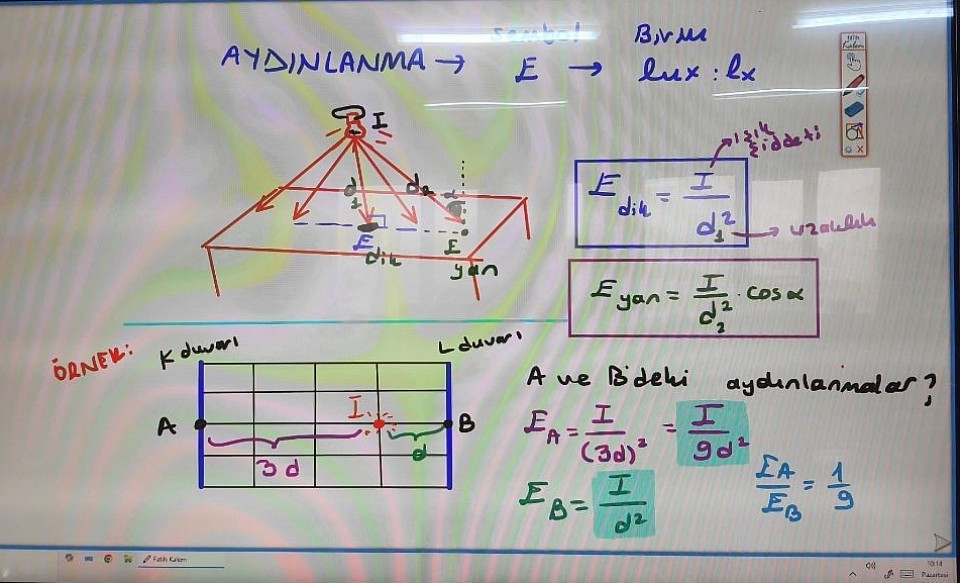 sembol Birim
AYDINLANMA → E → lux : lx
I
ışık
şiddeti
d1 d2 α
E dik = I / d1²
uzaklık
E dik
E yan
E yan = I / d2² . cosα
ÖRNEK:
K duvarı
L duvarı
A I B
3d d
A ve B'deki aydınlanmalar?
E_A = I / (3d)² = I / 9d²
E_B = I / d²
E_A / E_B = 1 / 9
Fatih Kalem
10:14
Pazartesi